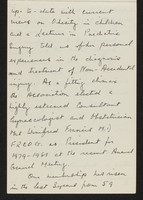 up-to-date with current
views on Obesity in Children
and a Lecturer in Paediatric
Surgery told us of his personal
experiences in the diagnosis
and treatment of Non-Accidental
injury. As a fitting climax
the Association elected a
highly esteemed Consultant
Gynaecologist and Obstetrician
F.R.C.O.G. as President for
1979-1980 at the recent Annual
General Meeting.
Our membership has risen
in the last Year from 59